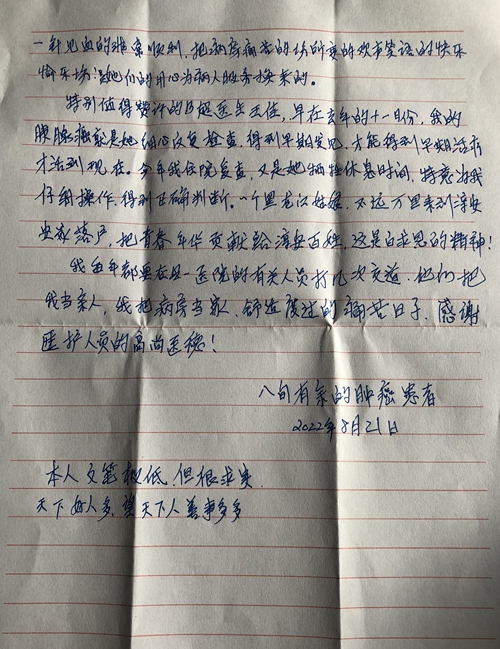 一针见血的非常顺利，把病房痛苦的场所变的欢声笑语的快乐
愉乐场！是她们的用心为病人服务换来的。
特别值得赞许的B超医生王佳，早在去年的十一月份，我的
胰腺癌就是她细心反复检查，得到早期发现，才能得到早期治疗
才活到现在。今年我住院复查，又是她牺牲休息时间，特意为我
仔细操作，得到正确判断。一个黑龙江姑娘，不远万里来到淳安
安家落户，把青春年华贡献给淳安百姓，这是白求恩的精神！
我每年都要在县一医院的有关人员打几次交道，他们把
我当亲人，我把病房当家，舒适度过的痛苦日子，感谢
医护人员的高尚医德！
八旬有余的肿癌患者
2022年8月21日
本人文笔极低，但很求实
天下好人多，望天下人善事多多